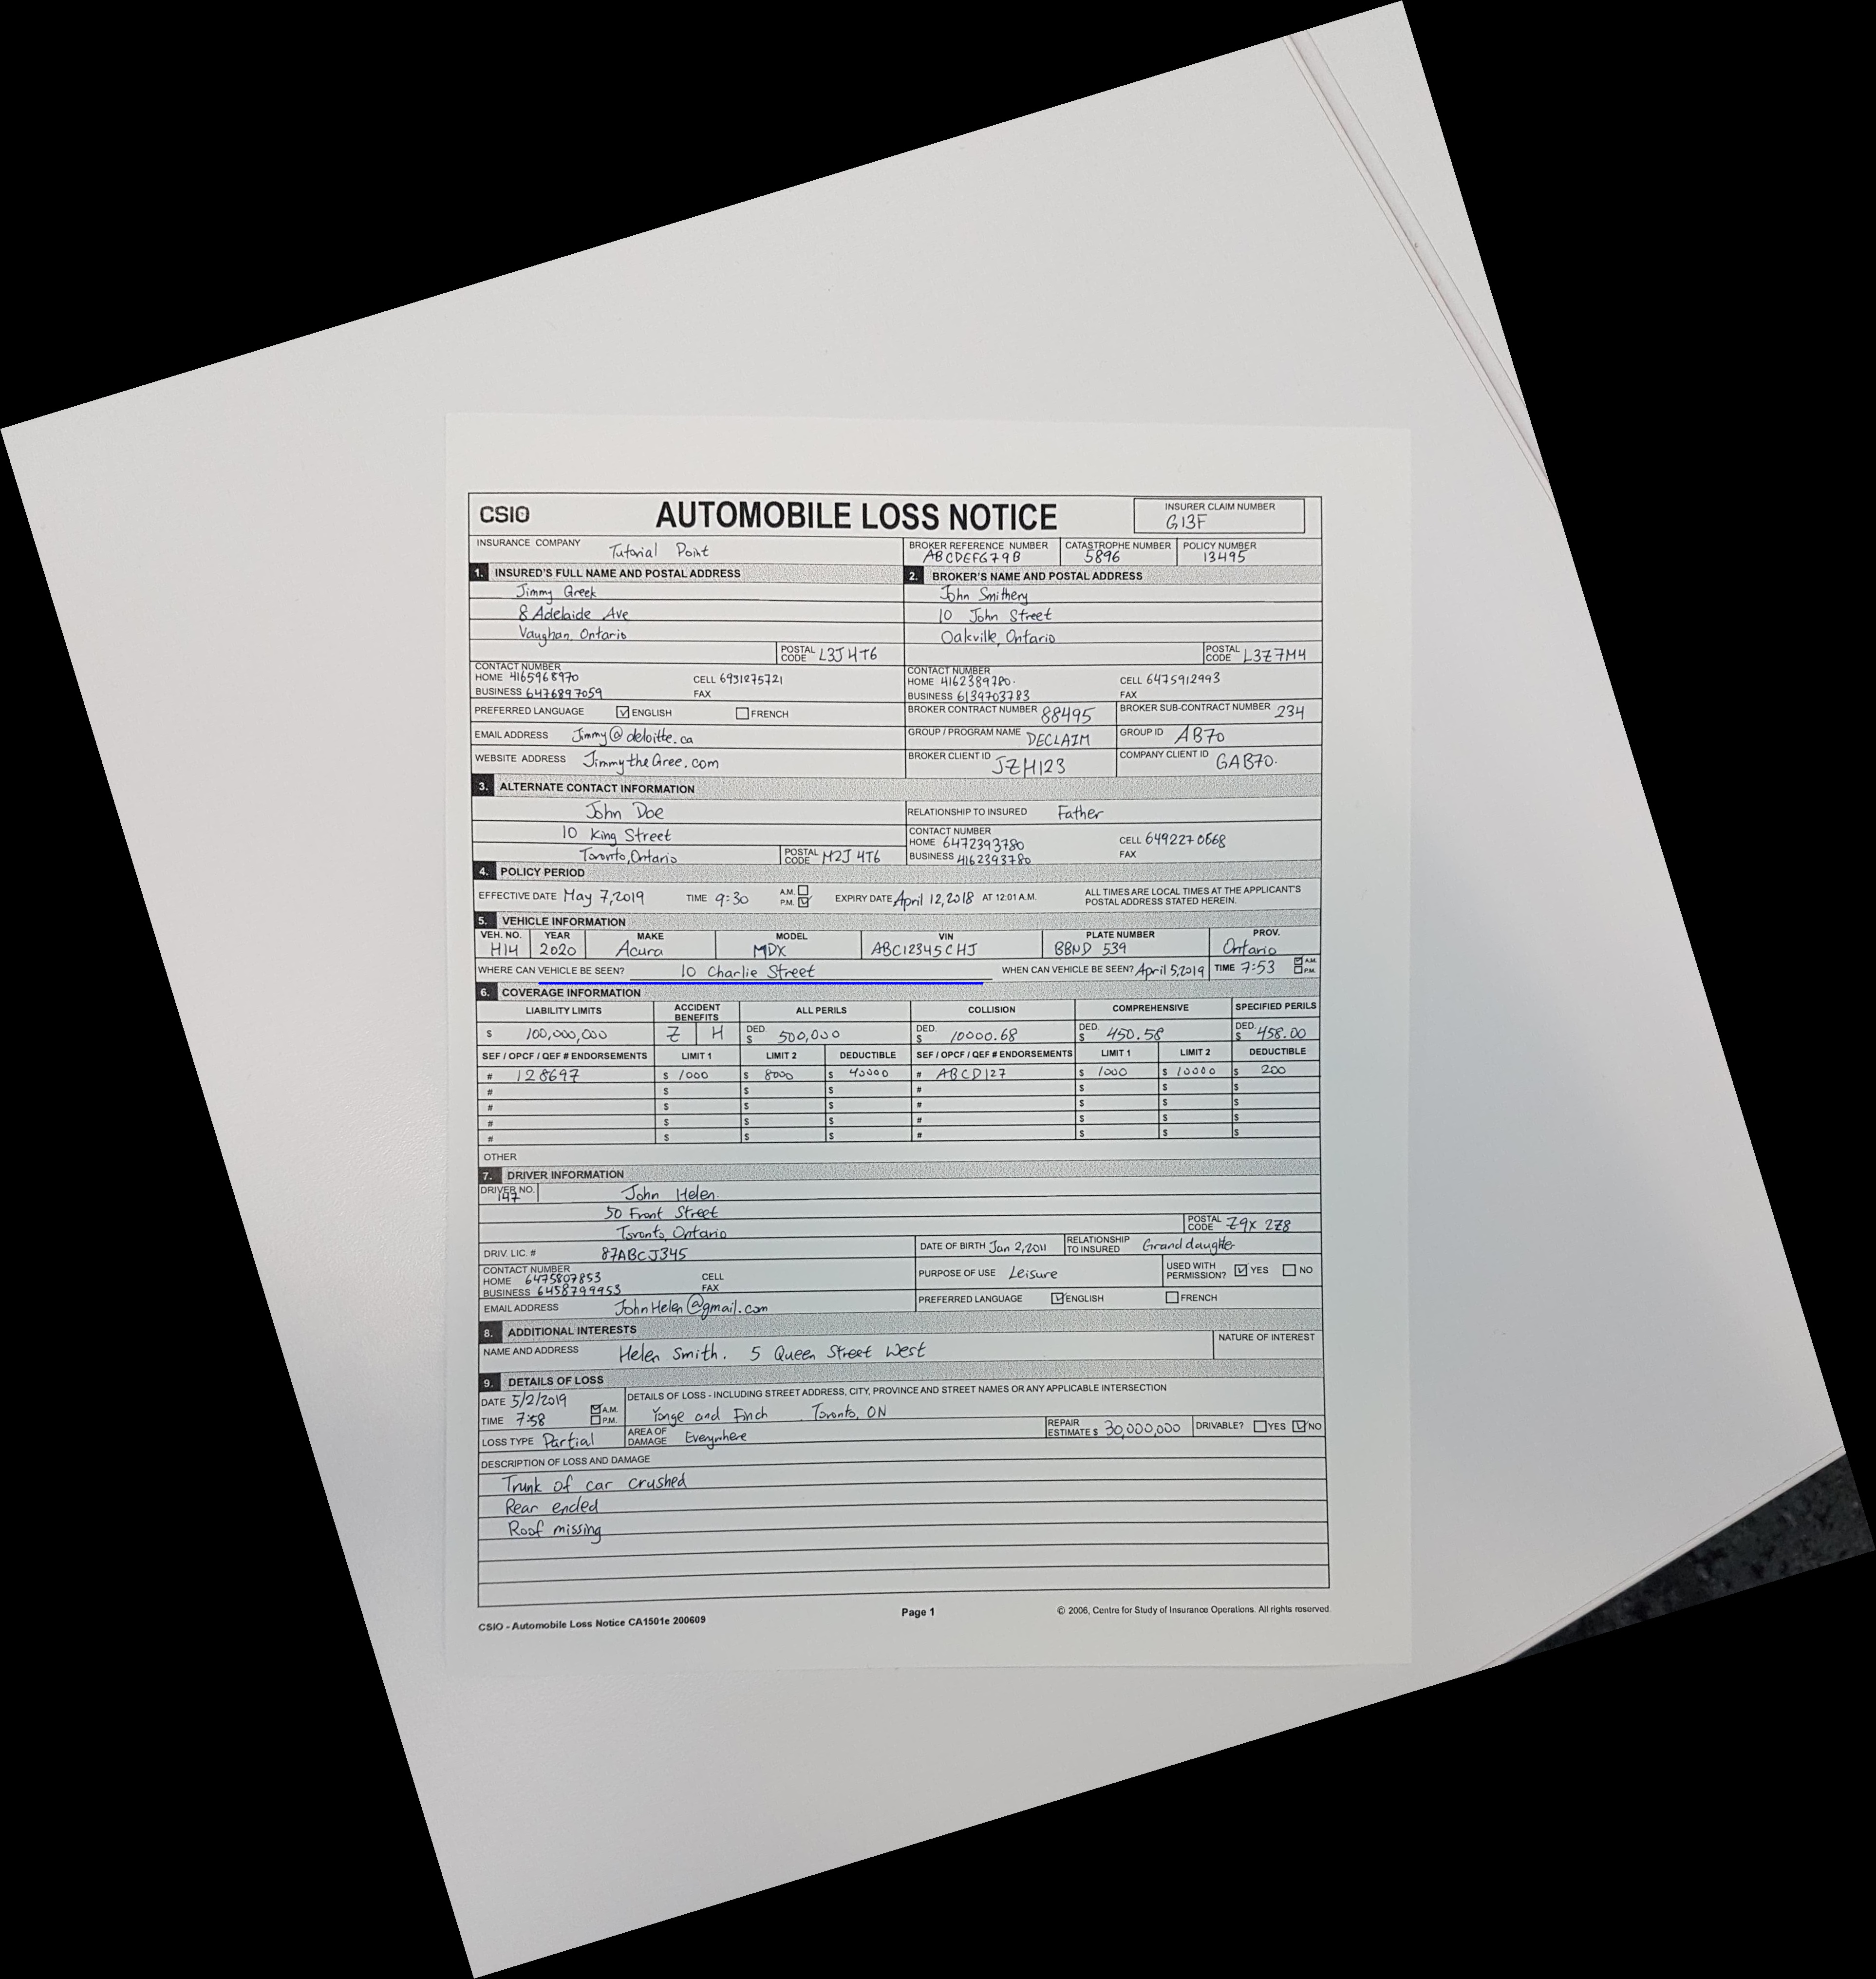 CSIO
AUTOMOBILE LOSS NOTICE
INSURER CLAIM NUMBER
G13F
INSURANCE COMPANY Tutorial Point
BROKER REFERENCE NUMBER CATASTROPHE NUMBER POLICY NUMBER
ABCDEFG79B 5896 13495
1. INSURED'S FULL NAME AND POSTAL ADDRESS
Jimmy Greek
8 Adelaide Ave
Vaughan, Ontario
POSTAL CODE L3J4T6
CONTACT NUMBER
HOME 4165968970 CELL 6931275721
BUSINESS 6476897059 FAX
PREFERRED LANGUAGE ENGLISH FRENCH
EMAIL ADDRESS Jimmy@deloitte.ca
WEBSITE ADDRESS JimmytheGree.com
2. BROKER'S NAME AND POSTAL ADDRESS
John Smithery
10 John Street
Oakville, Ontario
POSTAL CODE L3Z7M4
CONTACT NUMBER
HOME 4162389780. CELL 6475912993
BUSINESS 6139703783 FAX
BROKER CONTRACT NUMBER 88495 BROKER SUB-CONTRACT NUMBER 234
GROUP / PROGRAM NAME DECLAIM GROUP ID AB70
BROKER CLIENT ID JZH123 COMPANY CLIENT ID GAB70.
3. ALTERNATE CONTACT INFORMATION
John Doe
10 King Street
Toronto, Ontario
POSTAL CODE M2J 4T6
RELATIONSHIP TO INSURED Father
CONTACT NUMBER
HOME 6472393780 CELL 6492270668
BUSINESS 4162393780 FAX
4. POLICY PERIOD
EFFECTIVE DATE May 7, 2019 TIME 9:30 A.M. P.M. EXPIRY DATE April 12, 2018 AT 12:01 A.M.
ALL TIMES ARE LOCAL TIMES AT THE APPLICANT'S
POSTAL ADDRESS STATED HEREIN.
5. VEHICLE INFORMATION
VEH. NO. YEAR MAKE MODEL VIN PLATE NUMBER PROV.
H14 2020 Acura MDX ABC12345CHJ BBND 539 Ontario
WHERE CAN VEHICLE BE SEEN? 10 Charlie Street WHEN CAN VEHICLE BE SEEN? April 5, 2019 TIME 7:53 A.M. P.M.
6. COVERAGE INFORMATION
LIABILITY LIMITS ACCIDENT BENEFITS ALL PERILS COLLISION COMPREHENSIVE SPECIFIED PERILS
$ 100,000,000 Z H DED. $ 500,000 DED. $ 10000.68 DED. $ 450.58 DED. $ 458.00
SEF / OPCF / QEF # ENDORSEMENTS LIMIT 1 LIMIT 2 DEDUCTIBLE SEF / OPCF / QEF # ENDORSEMENTS LIMIT 1 LIMIT 2 DEDUCTIBLE
# 128697 $ 1000 $ 8000 $ 40000 # ABCD127 $ 1000 $ 10000 $ 200
# $ $ $ # $ $ $
# $ $ $ # $ $ $
# $ $ $ # $ $ $
# $ $ $ # $ $ $
OTHER
7. DRIVER INFORMATION
DRIVER NO. 147
John Helen
50 Front Street
Toronto, Ontario
POSTAL CODE Z9X 2Z8
DRIV. LIC. # 87ABCJ345
DATE OF BIRTH Jan 2, 2011 RELATIONSHIP TO INSURED Granddaughter
CONTACT NUMBER
HOME 6475807853 CELL
BUSINESS 6458799953 FAX
PURPOSE OF USE Leisure USED WITH PERMISSION? YES NO
EMAIL ADDRESS JohnHelen@gmail.com
PREFERRED LANGUAGE ENGLISH FRENCH
8. ADDITIONAL INTERESTS
NAME AND ADDRESS Helen Smith. 5 Queen Street West NATURE OF INTEREST
9. DETAILS OF LOSS
DATE 5/2/2019
TIME 7:58 A.M. P.M.
DETAILS OF LOSS - INCLUDING STREET ADDRESS, CITY, PROVINCE AND STREET NAMES OR ANY APPLICABLE INTERSECTION
Yonge and Finch Toronto, ON
LOSS TYPE Partial AREA OF DAMAGE Everywhere REPAIR ESTIMATE $ 30,000,000 DRIVABLE? YES NO
DESCRIPTION OF LOSS AND DAMAGE
Trunk of car crushed
Rear ended
Roof missing
CSIO - Automobile Loss Notice CA1501e 200609
Page 1
© 2006, Centre for Study of Insurance Operations. All rights reserved.